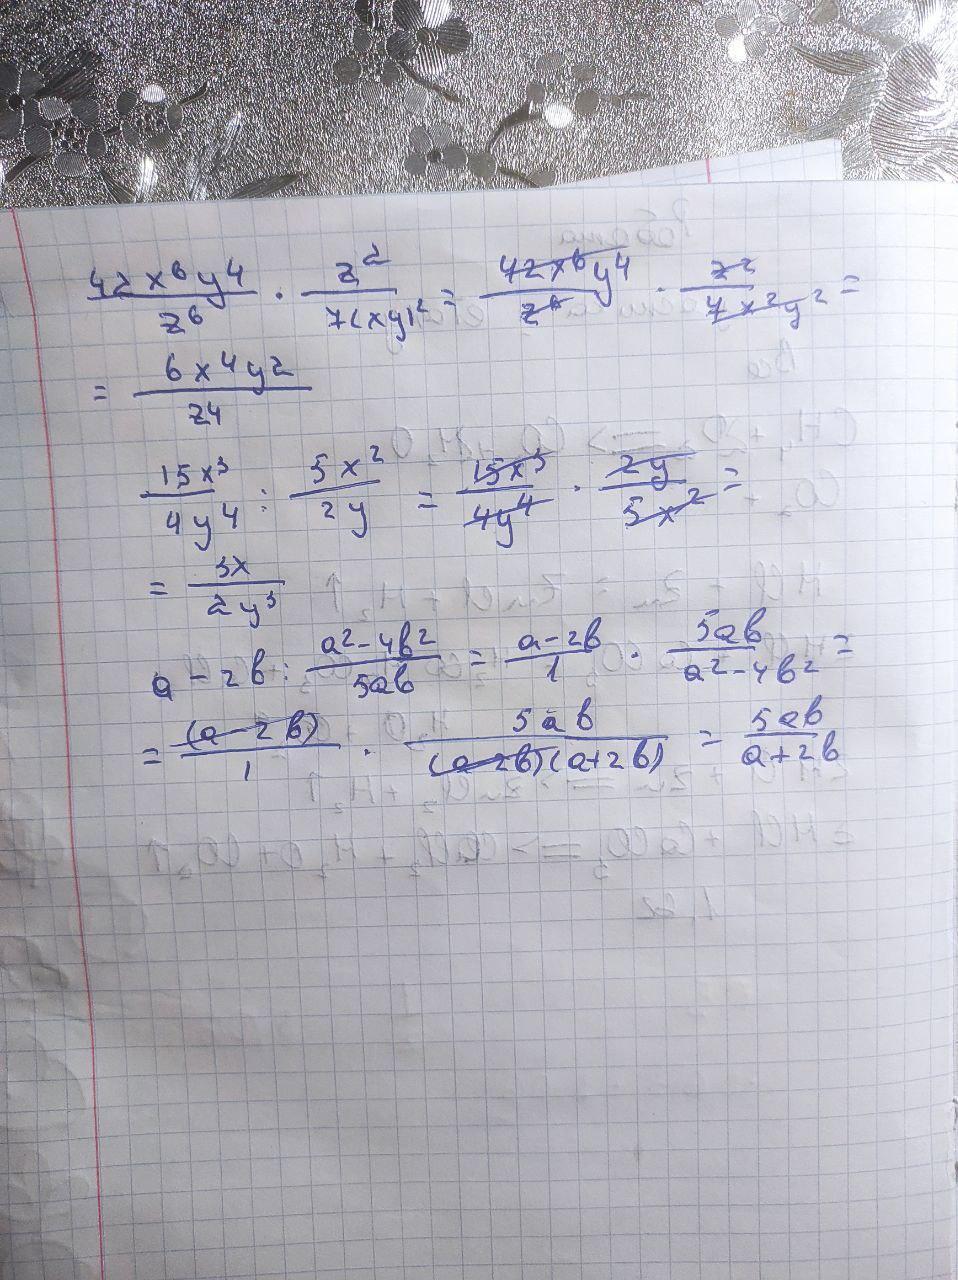 42x⁶y⁴/z⁶ · z²/7(xy)² = 42x⁶y⁴/z⁶ · z²/7x²y² =
= 6x⁴y²/z⁴
15x³/4y⁴ : 5x²/2y = 15x³/4y⁴ · 2y/5x² =
= 3x/2y³
a - 2b : a²-4b²/5ab = a-2b/1 · 5ab/a²-4b² =
= (a-2b)/1 · 5ab/(a-2b)(a+2b) = 5ab/a+2b